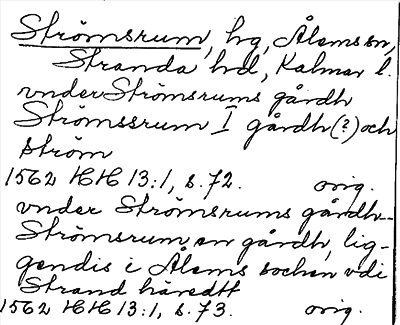 Strömsrum, hg, Ålems sn,
Stranda hd, Kalmar l.
vnder Strömsrums gårdh
Strömssrum I gårdh (?) och
ström
1562 HH 13:1, s. 72. orig.
vnder Strömsrums gårdh –
Strömsrum, en gårdh, lig-
gendis i Ålems sochen vdi
Strand häredtt
1562 HH 13:1, s. 73. orig.